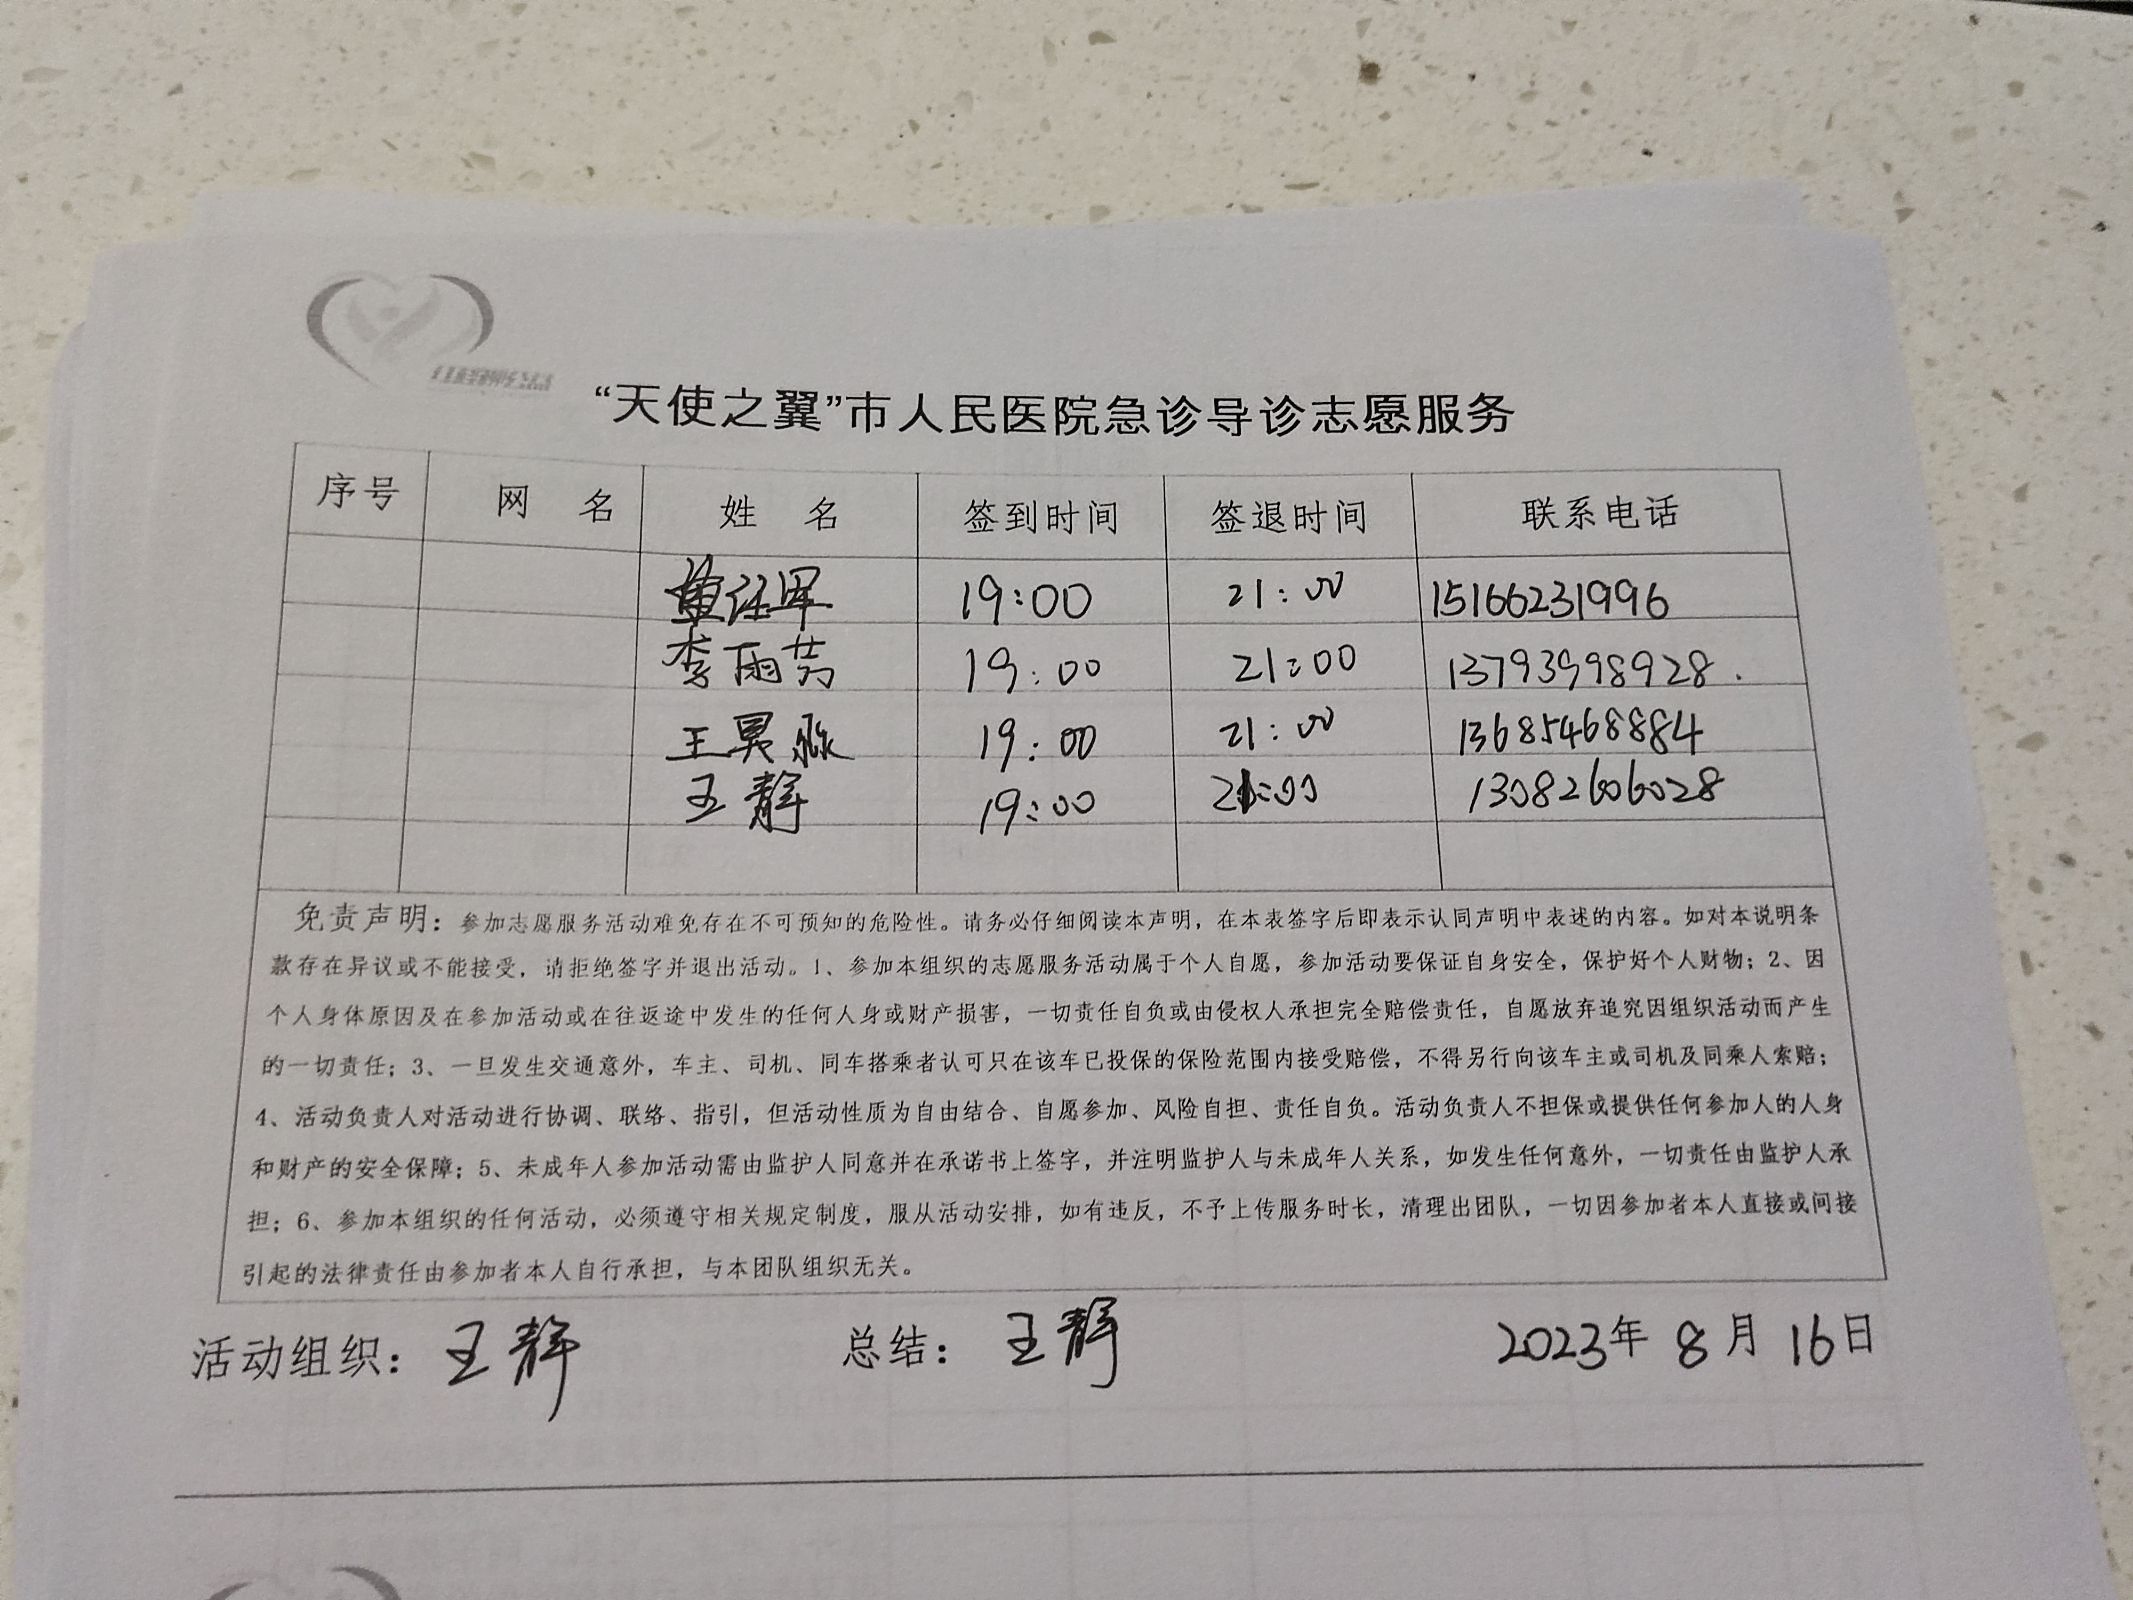 “天使之翼”市人民医院急诊导诊志愿服务
序号 网 名 姓 名 签到时间 签退时间 联系电话
19:00 21:00 15166231996
李雨芳 19:00 21:00 13793998928.
王昊淼 19:00 21:00 13685468884
王静 19:00 21:00 13082606028
免责声明：参加志愿服务活动难免存在不可预知的危险性。请务必仔细阅读本声明，在本表签字后即表示认同声明中表述的内容。如对本说明条
款存在异议或不能接受，请拒绝签字并退出活动。1、参加本组织的志愿服务活动属于个人自愿，参加活动要保证自身安全，保护好个人财物；2、因
个人身体原因及在参加活动或在往返途中发生的任何人身或财产损害，一切责任自负或由侵权人承担完全赔偿责任，自愿放弃追究因组织活动而产生
的一切责任；3、一旦发生交通意外，车主、司机、同车搭乘者认可只在该车已投保的保险范围内接受赔偿，不得另行向该车主或司机及同乘人索赔；
4、活动负责人对活动进行协调、联络、指引，但活动性质为自由结合、自愿参加、风险自担、责任自负。活动负责人不担保或提供任何参加人的人身
和财产的安全保障；5、未成年人参加活动需由监护人同意并在承诺书上签字，并注明监护人与未成年人关系，如发生任何意外，一切责任由监护人承
担；6、参加本组织的任何活动，必须遵守相关规定制度，服从活动安排，如有违反，不予上传服务时长，清理出团队，一切因参加者本人直接或间接
引起的法律责任由参加者本人自行承担，与本团队组织无关。
活动组织：王静 总结：王静 2023年 8月 16日